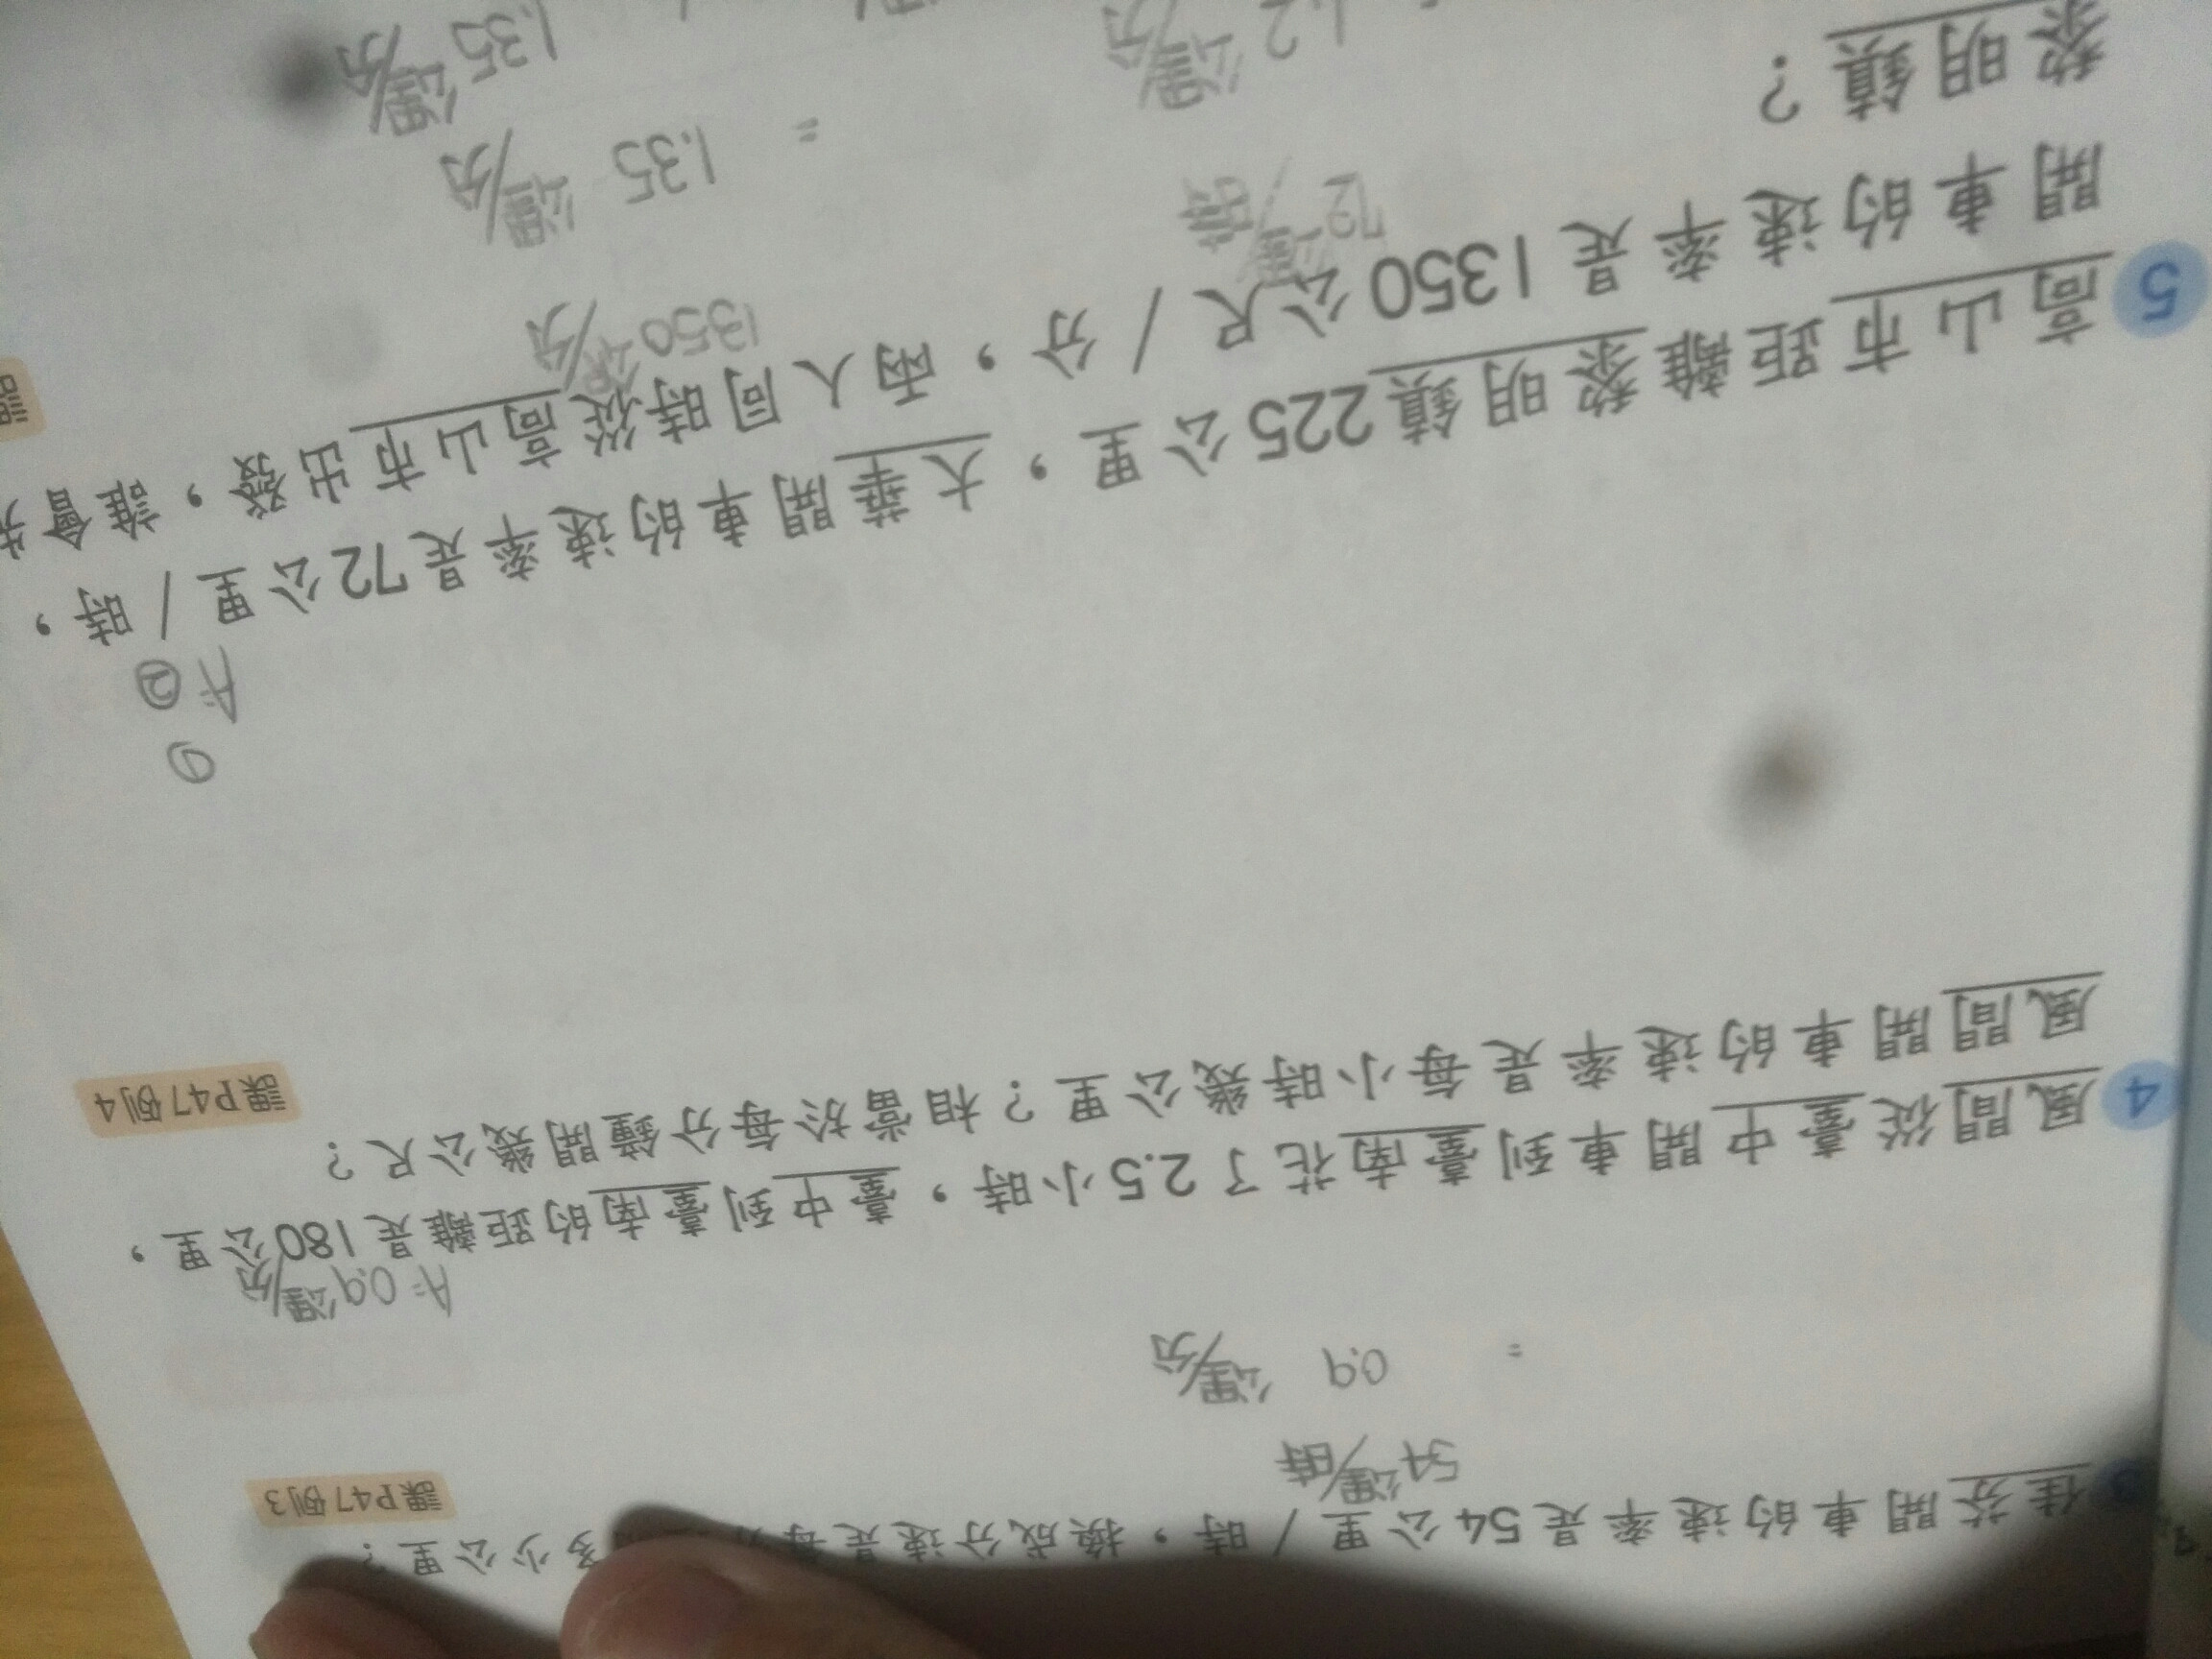 佳芬開車的速率是54公里/時，換成分速是每
多少公里？
課P47例3
54公里/時
= 0.9 公里/分
A:0.9公里/分
4 風間從臺中開車到臺南花了2.5小時，臺中到臺南的距離是180公里，
風間開車的速率是每小時幾公里？相當於每分鐘開幾公尺？
課P47例4
①
A:②
5 高山市距離黎明鎮225公里，大華開車的速率是72公里/時，
開車的速率是1350公尺/分，兩人同時從高山市出發，誰會
黎明鎮？
課
72公里/時
1350公尺/分
= 1.35 公里/分
1.2 公里/分
1.35 公里/分